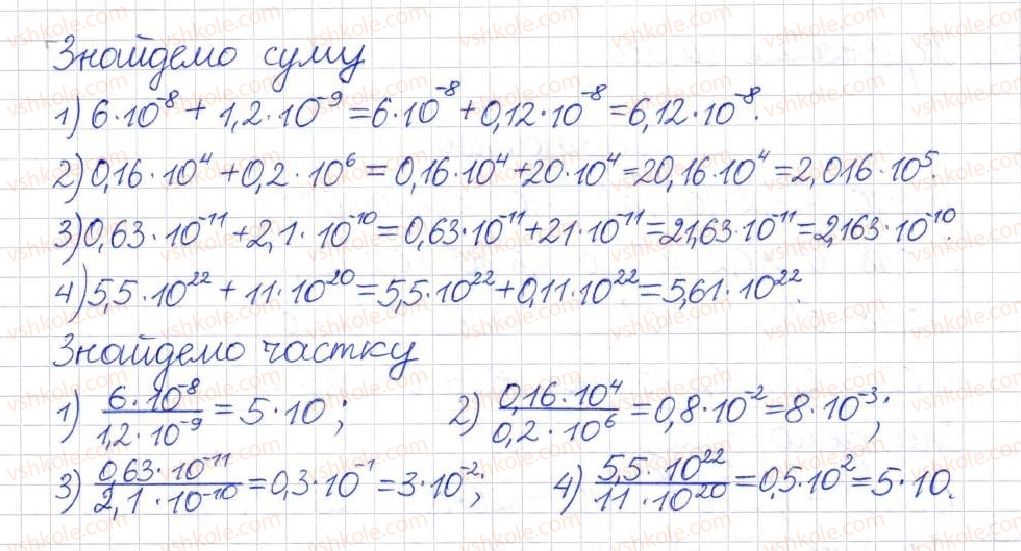 Знайдемо суму
1) 6·10⁻⁸ + 1,2·10⁻⁹ = 6·10⁻⁸ + 0,12·10⁻⁸ = 6,12·10⁻⁸.
2) 0,16·10⁴ + 0,2·10⁶ = 0,16·10⁴ + 20·10⁴ = 20,16·10⁴ = 2,016·10⁵.
3) 0,63·10⁻¹¹ + 2,1·10⁻¹⁰ = 0,63·10⁻¹¹ + 21·10⁻¹¹ = 21,63·10⁻¹¹ = 2,163·10⁻¹⁰.
4) 5,5·10²² + 11·10²⁰ = 5,5·10²² + 0,11·10²² = 5,61·10²².
Знайдемо частку
1) 6·10⁻⁸ / 1,2·10⁻⁹ = 5·10; 2) 0,16·10⁴ / 0,2·10⁶ = 0,8·10⁻² = 8·10⁻³;
3) 0,63·10⁻¹¹ / 2,1·10⁻¹⁰ = 0,3·10⁻¹ = 3·10⁻²; 4) 5,5·10²² / 11·10²⁰ = 0,5·10² = 5·10.